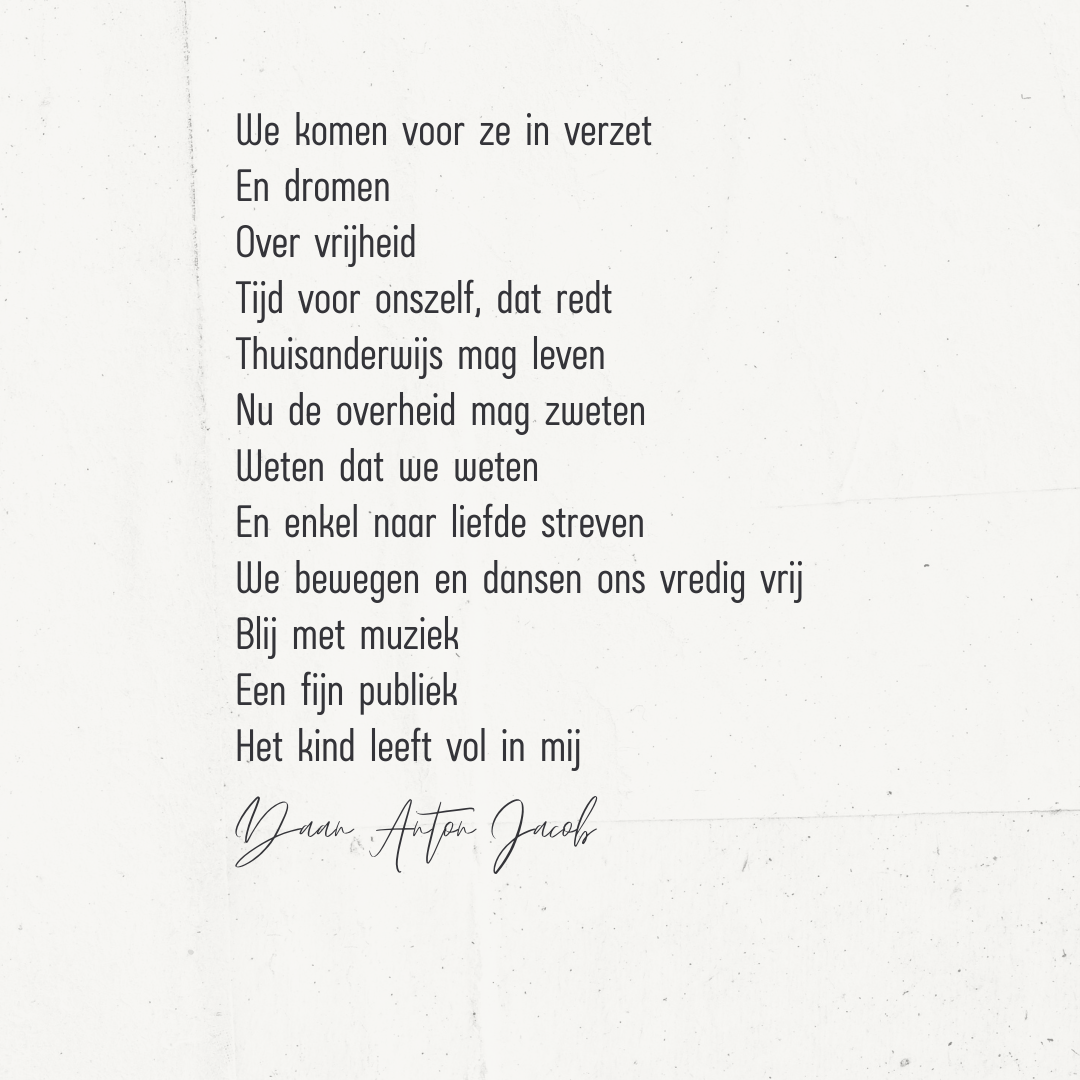 We komen voor ze in verzet
En dromen
Over vrijheid
Tijd voor onszelf, dat redt
Thuisanderwijs mag leven
Nu de overheid mag zweten
Weten dat we weten
En enkel naar liefde streven
We bewegen en dansen ons vredig vrij
Blij met muziek
Een fijn publiek
Het kind leeft vol in mij
Daan Anton Jacob